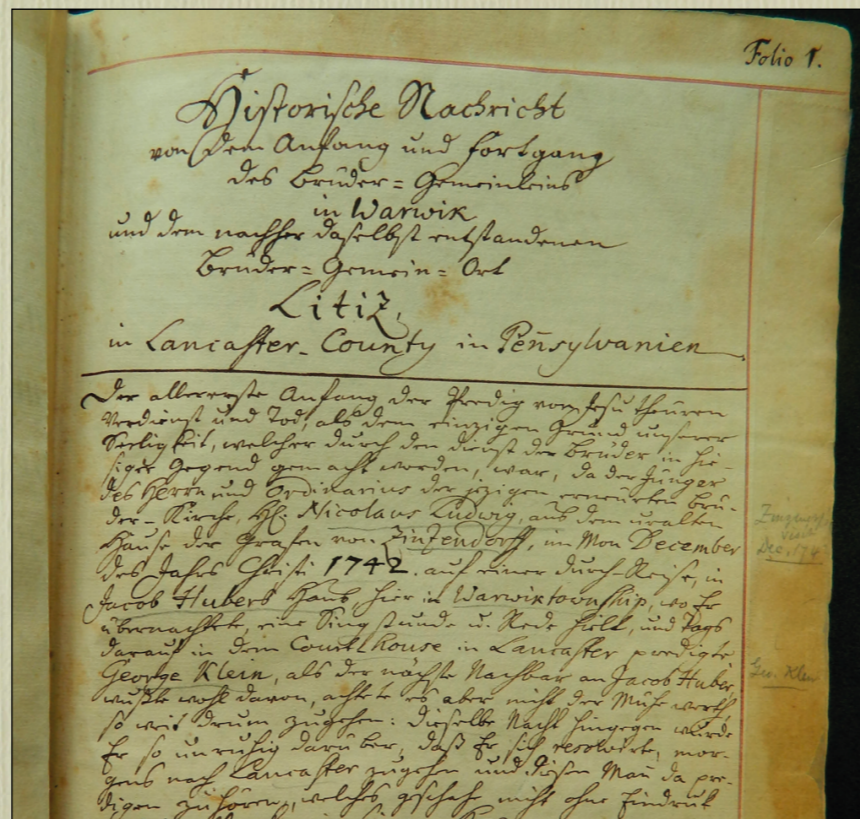 Folio 1.
Historische Nachricht
von dem Anfang und Fortgang
des Brüder = Gemeinleins
in Warwik
und dem nachher daselbst entstandenen
Brüder = Gemein = Ort
Litiz,
in Lancaster County in Pen̄sylvanien
Der allererste Anfang der Predig von Jesu theuren
Verdienst und Tod, als dem einzigen Grund unserer
Seeligkeit, welcher durch den Dienst der Brüder in hie-
siger Gegend gemacht worden, war, da der Jünger
des Herrn und Ordinarius der jezigen erneurten Brü-
der-Kirche, Hl. Nicolaus Ludwig, aus dem uralten
Hause der Grafen von Zinzendorff, im Mon December
des Jahrs Christi 1742. auf einer durch-Reise, in
Jacob Hubers Haus, hier in Warwiktownship, wo Er
übernachtete, eine Singstunde u. Rede hielt, und Tags
darauf in dem Courthouse in Lancaster predigte
George Klein, als der nächste Nachbar an Jacob Huber,
wußte wohl davon, achtete es aber nicht der Mühe werth,
so weit drum zugehen: dieselbe Nacht hingegen wurde
Er so unruhig darüber, daß Er sich resolvirte, mor-
gens nach Lancaster zugehen und diesen Man da pre-
digen zu hören, welches geschah nicht ohne Eindruk
Zinzendorf's
visit
Dec. 174
Geo. Klein